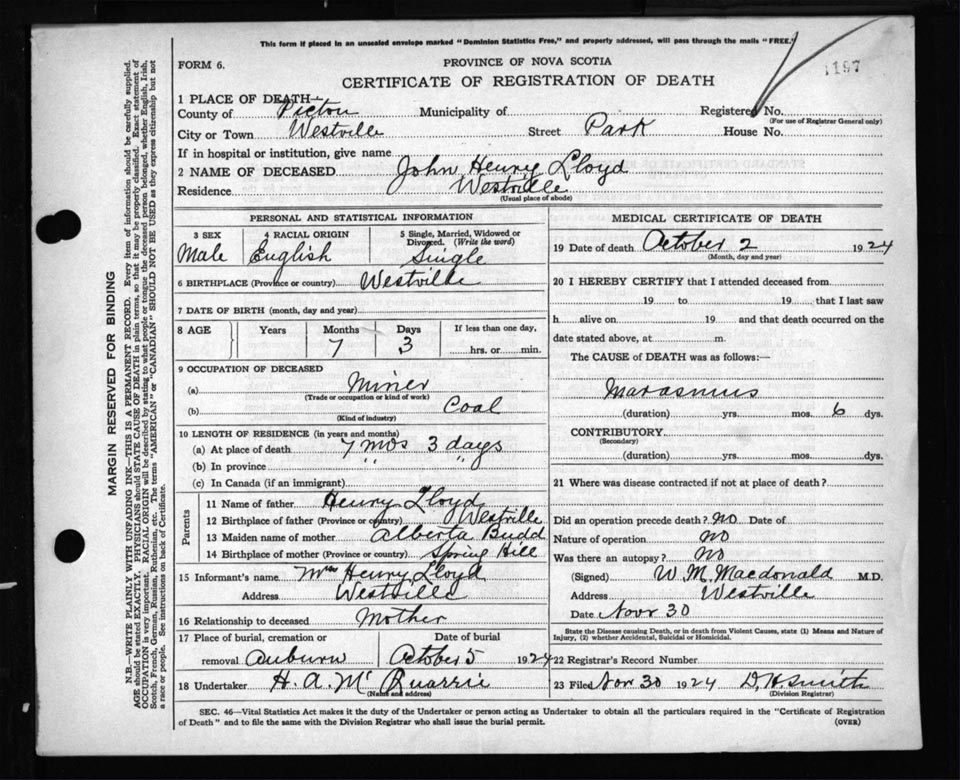 This form if placed in an unsealed envelope marked "Dominion Statistics Free," and property addressed, will pass through the mails "FREE."
1197
FORM 6.
PROVINCE OF NOVA SCOTIA
CERTIFICATE OF REGISTRATION OF DEATH
1 PLACE OF DEATH—
County of Pictou Municipality of Registered No.
(For use of Registrar General only)
City or Town Westville Street Park House No.
If in hospital or institution, give name
2 NAME OF DECEASED John Henry Lloyd
Residence Westville
(Usual place of abode)
PERSONAL AND STATISTICAL INFORMATION
3 SEX 4 RACIAL ORIGIN 5 Single, Married, Widowed or Divorced. (Write the word)
Male English Single
6 BIRTHPLACE (Province or country) Westville
7 DATE OF BIRTH (month, day and year)
8 AGE Years Months Days If less than one day,
7 3 hrs. or min.
9 OCCUPATION OF DECEASED
(a) Miner
(Trade or occupation or kind of work)
(b) Coal
(Kind of industry)
10 LENGTH OF RESIDENCE (in years and months)
(a) At place of death 7 mos 3 days
(b) In province " "
(c) In Canada (if an immigrant)
Parents
11 Name of father Henry Lloyd
12 Birthplace of father (Province or country) Westville
13 Maiden name of mother Alberta Budd
14 Birthplace of mother (Province or country) Spring Hill
15 Informant's name Mrs Henry Lloyd
Address Westville
16 Relationship to deceased Mother
17 Place of burial, cremation or removal Auburn
Date of burial October 5 1924
18 Undertaker H. A. McQuarrie
(Name and address)
MEDICAL CERTIFICATE OF DEATH
19 Date of death October 2 1924
(Month, day and year)
20 I HEREBY CERTIFY that I attended deceased from
19 to 19 that I last saw
h alive on 19 and that death occurred on the
date stated above, at m.
The CAUSE of DEATH was as follows:—
Marasmus
(duration) yrs. mos. 6 dys.
CONTRIBUTORY
(Secondary)
(duration) yrs. mos. dys.
21 Where was disease contracted if not at place of death?
Did an operation precede death? No Date of
Nature of operation No
Was there an autopsy? No
(Signed) W. M. Macdonald M.D.
Address Westville
Date Novr 30
State the Disease causing Death, or in death from Violent Causes, state (1) Means and Nature of
Injury, (2) whether Accidental, Suicidal or Homicidal.
22 Registrar's Record Number
23 Filed Nov 30 1924 D. H. Smith
(Division Registrar)
SEC. 46—Vital Statistics Act makes it the duty of the Undertaker or person acting as Undertaker to obtain all the particulars required in the "Certificate of Registration
of Death" and to file the same with the Division Registrar who shall issue the burial permit.
(OVER)
MARGIN RESERVED FOR BINDING
N.B.—WRITE PLAINLY, WITH UNFADING INK—THIS IS A PERMANENT RECORD. Every item of information should be carefully supplied.
AGE should be stated EXACTLY. PHYSICIANS should STATE CAUSE OF DEATH in plain terms, so that it may be properly classified. Exact statement of
OCCUPATION is very important. RACIAL ORIGIN will be described by stating to what people or tongue the deceased person belonged, whether English, Irish,
Scotch, French, German, Russian, Ruthenian, etc. The terms "AMERICAN" or "CANADIAN" SHOULD NOT BE USED as they express citizenship but not
a race or people. See instructions on back of Certificate.